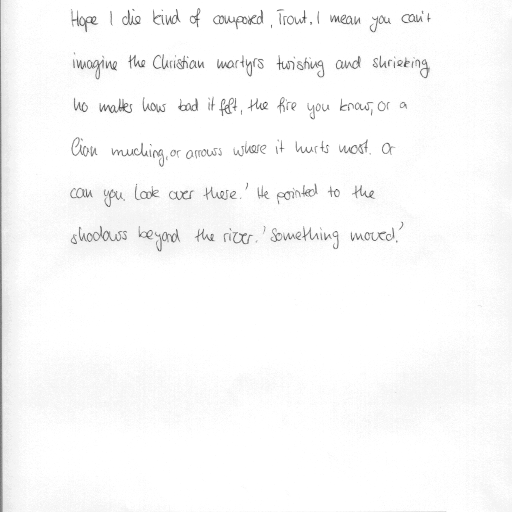 Hope I die kind of composed, Trout. I mean you can't
imagine the Christian martyrs twisting and shrieking
no matter how bad it felt, the fire you know, or a
lion muching, or arrows where it hurts most. Or
can you. Look over there.' He pointed to the
shadows beyond the river. 'Something moved.'